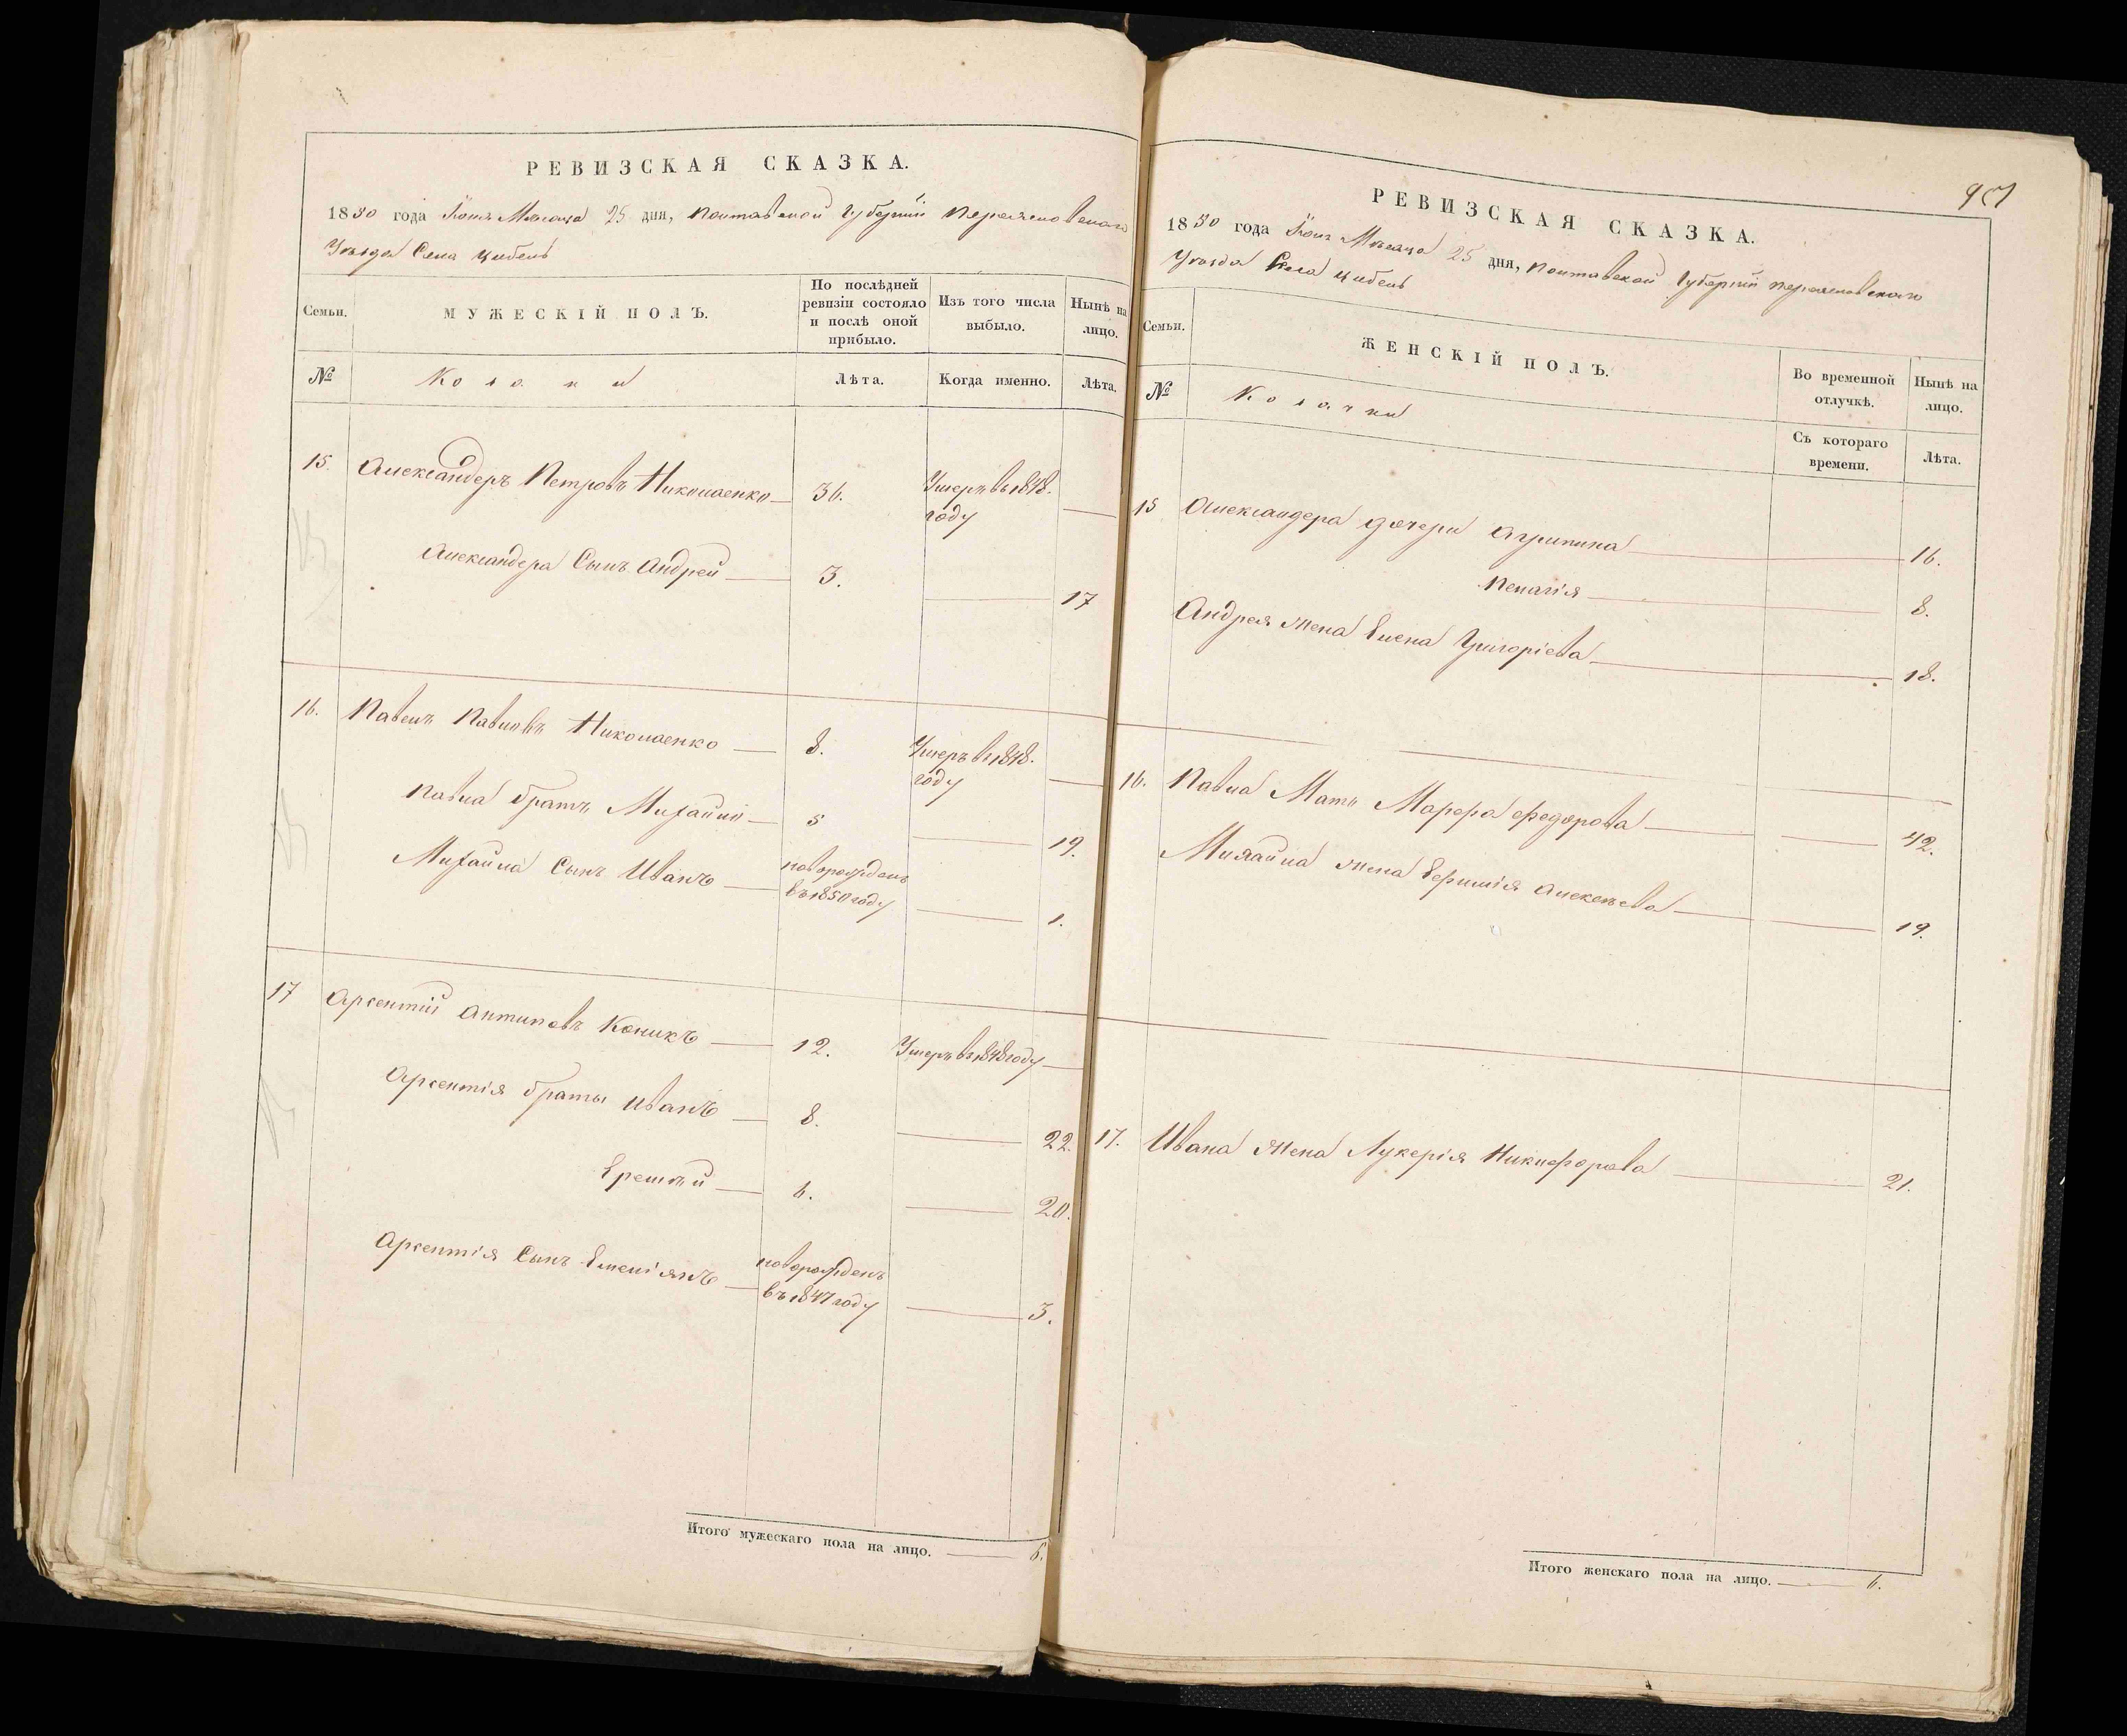 РЕВИЗСКАЯ СКАЗКА.
1850 года Іюня Мѣсяца 25 дня, Полтавской Губерніи Переяславскаго
Уѣзда Села Цибель
Семьи.
МУЖЕСКІЙ ПОЛЪ.
По послѣдней ревизіи состояло и послѣ оной прибыло.
Изъ того числа выбыло.
Нынѣ на лицо.
№
Козаки
Лѣта.
Когда именно.
Лѣта.
15. Александеръ Петровъ Николаенко 36. Умеръ въ 1848.
году
Александера Сынъ Андрей 3. 17
16. Павелъ Павловъ Николаенко 8. Умеръ въ 1848.
году
Павла братъ Михайло 5 19.
Михайла Сынъ Иванъ новорожденъ
въ 1850 году 1.
17 Арсентій Антиповъ Коникъ 12. Умеръ въ 1848 году
Арсентія браты Иванъ 8. 22.
Еремѣй 6. 20.
Арсентія Сынъ Емеліянъ новорожденъ
въ 1847 году 3.
Итого мужескаго пола на лицо. 6.
РЕВИЗСКАЯ СКАЗКА.
1850 года Іюня Мѣсяца 25 дня, Полтавской Губерніи Переяславскаго
Уѣзда Села Цибель
Семьи.
ЖЕНСКІЙ ПОЛЪ.
Во временной отлучкѣ.
Нынѣ на лицо.
№
Козачки
Съ котораго времени.
Лѣта.
15 Александера дочери Агрипина 16.
Пелагія 8.
Андрея жена Елена Григоріева 18.
16. Павла Мать Марфа Федорова 42.
Михайла жена Евфимія Алексѣева 19.
17. Ивана жена Лукерія Никифорова 21.
Итого женскаго пола на лицо. 6.